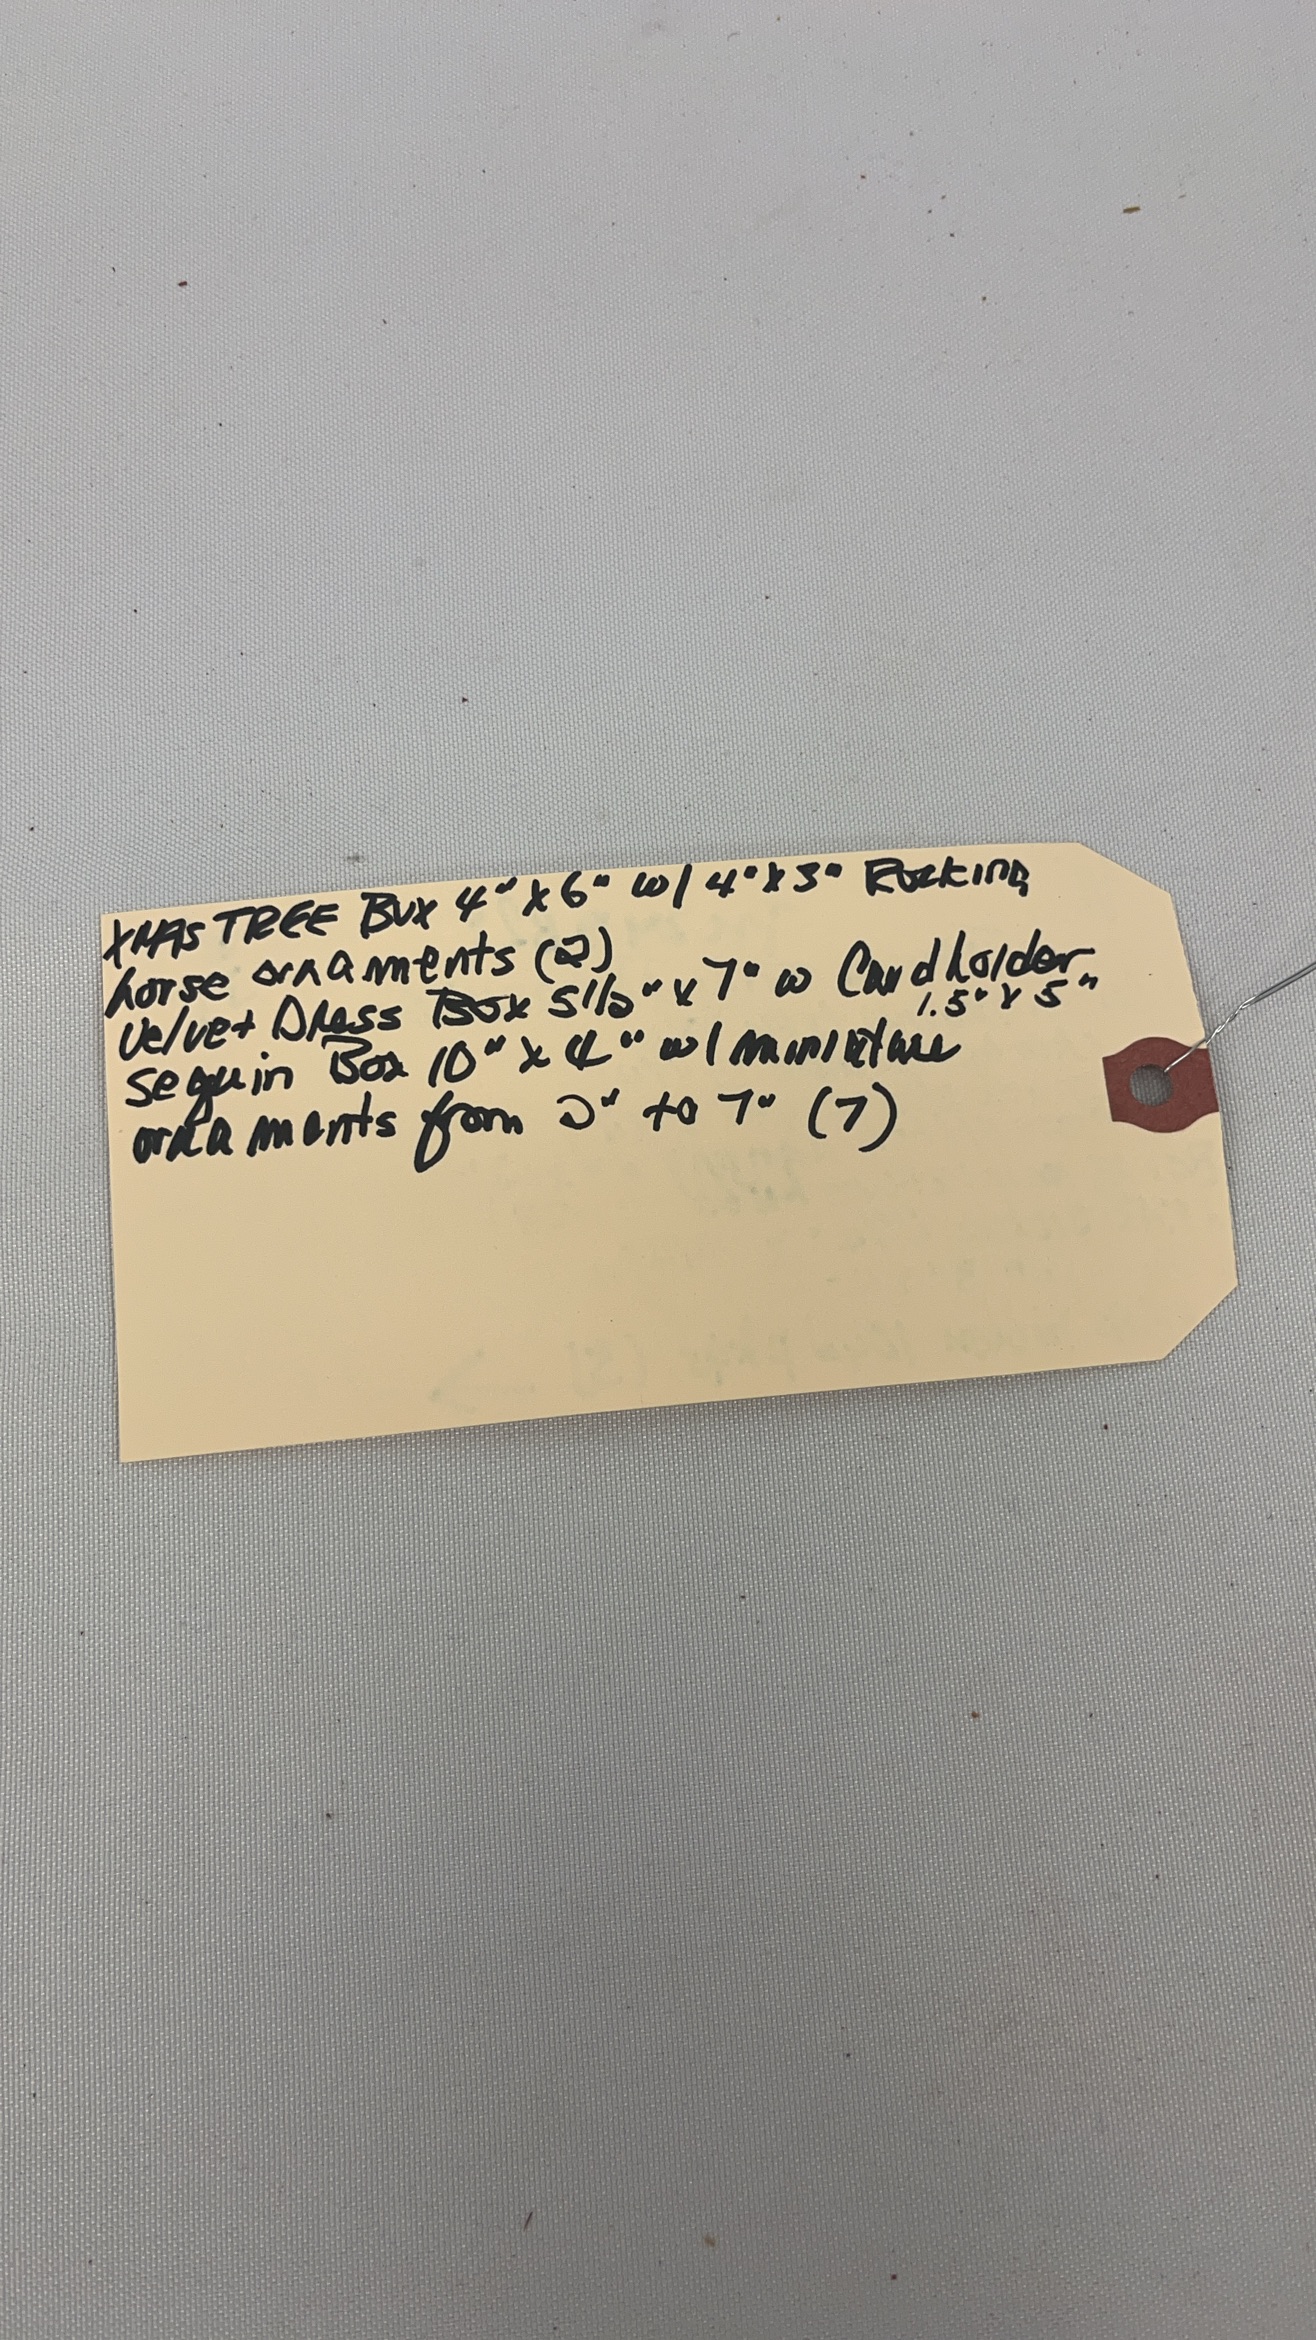 XMAS TREE Box 4" x 6" w/ 4" x 3" Rocking
horse ornaments (2)
Velvet Dress Box 5 1/2" x 7" w Cardholder
1.5" x 5"
Sequin Box 10" x 4" w/ miniature
ornaments from 2" to 7" (7)